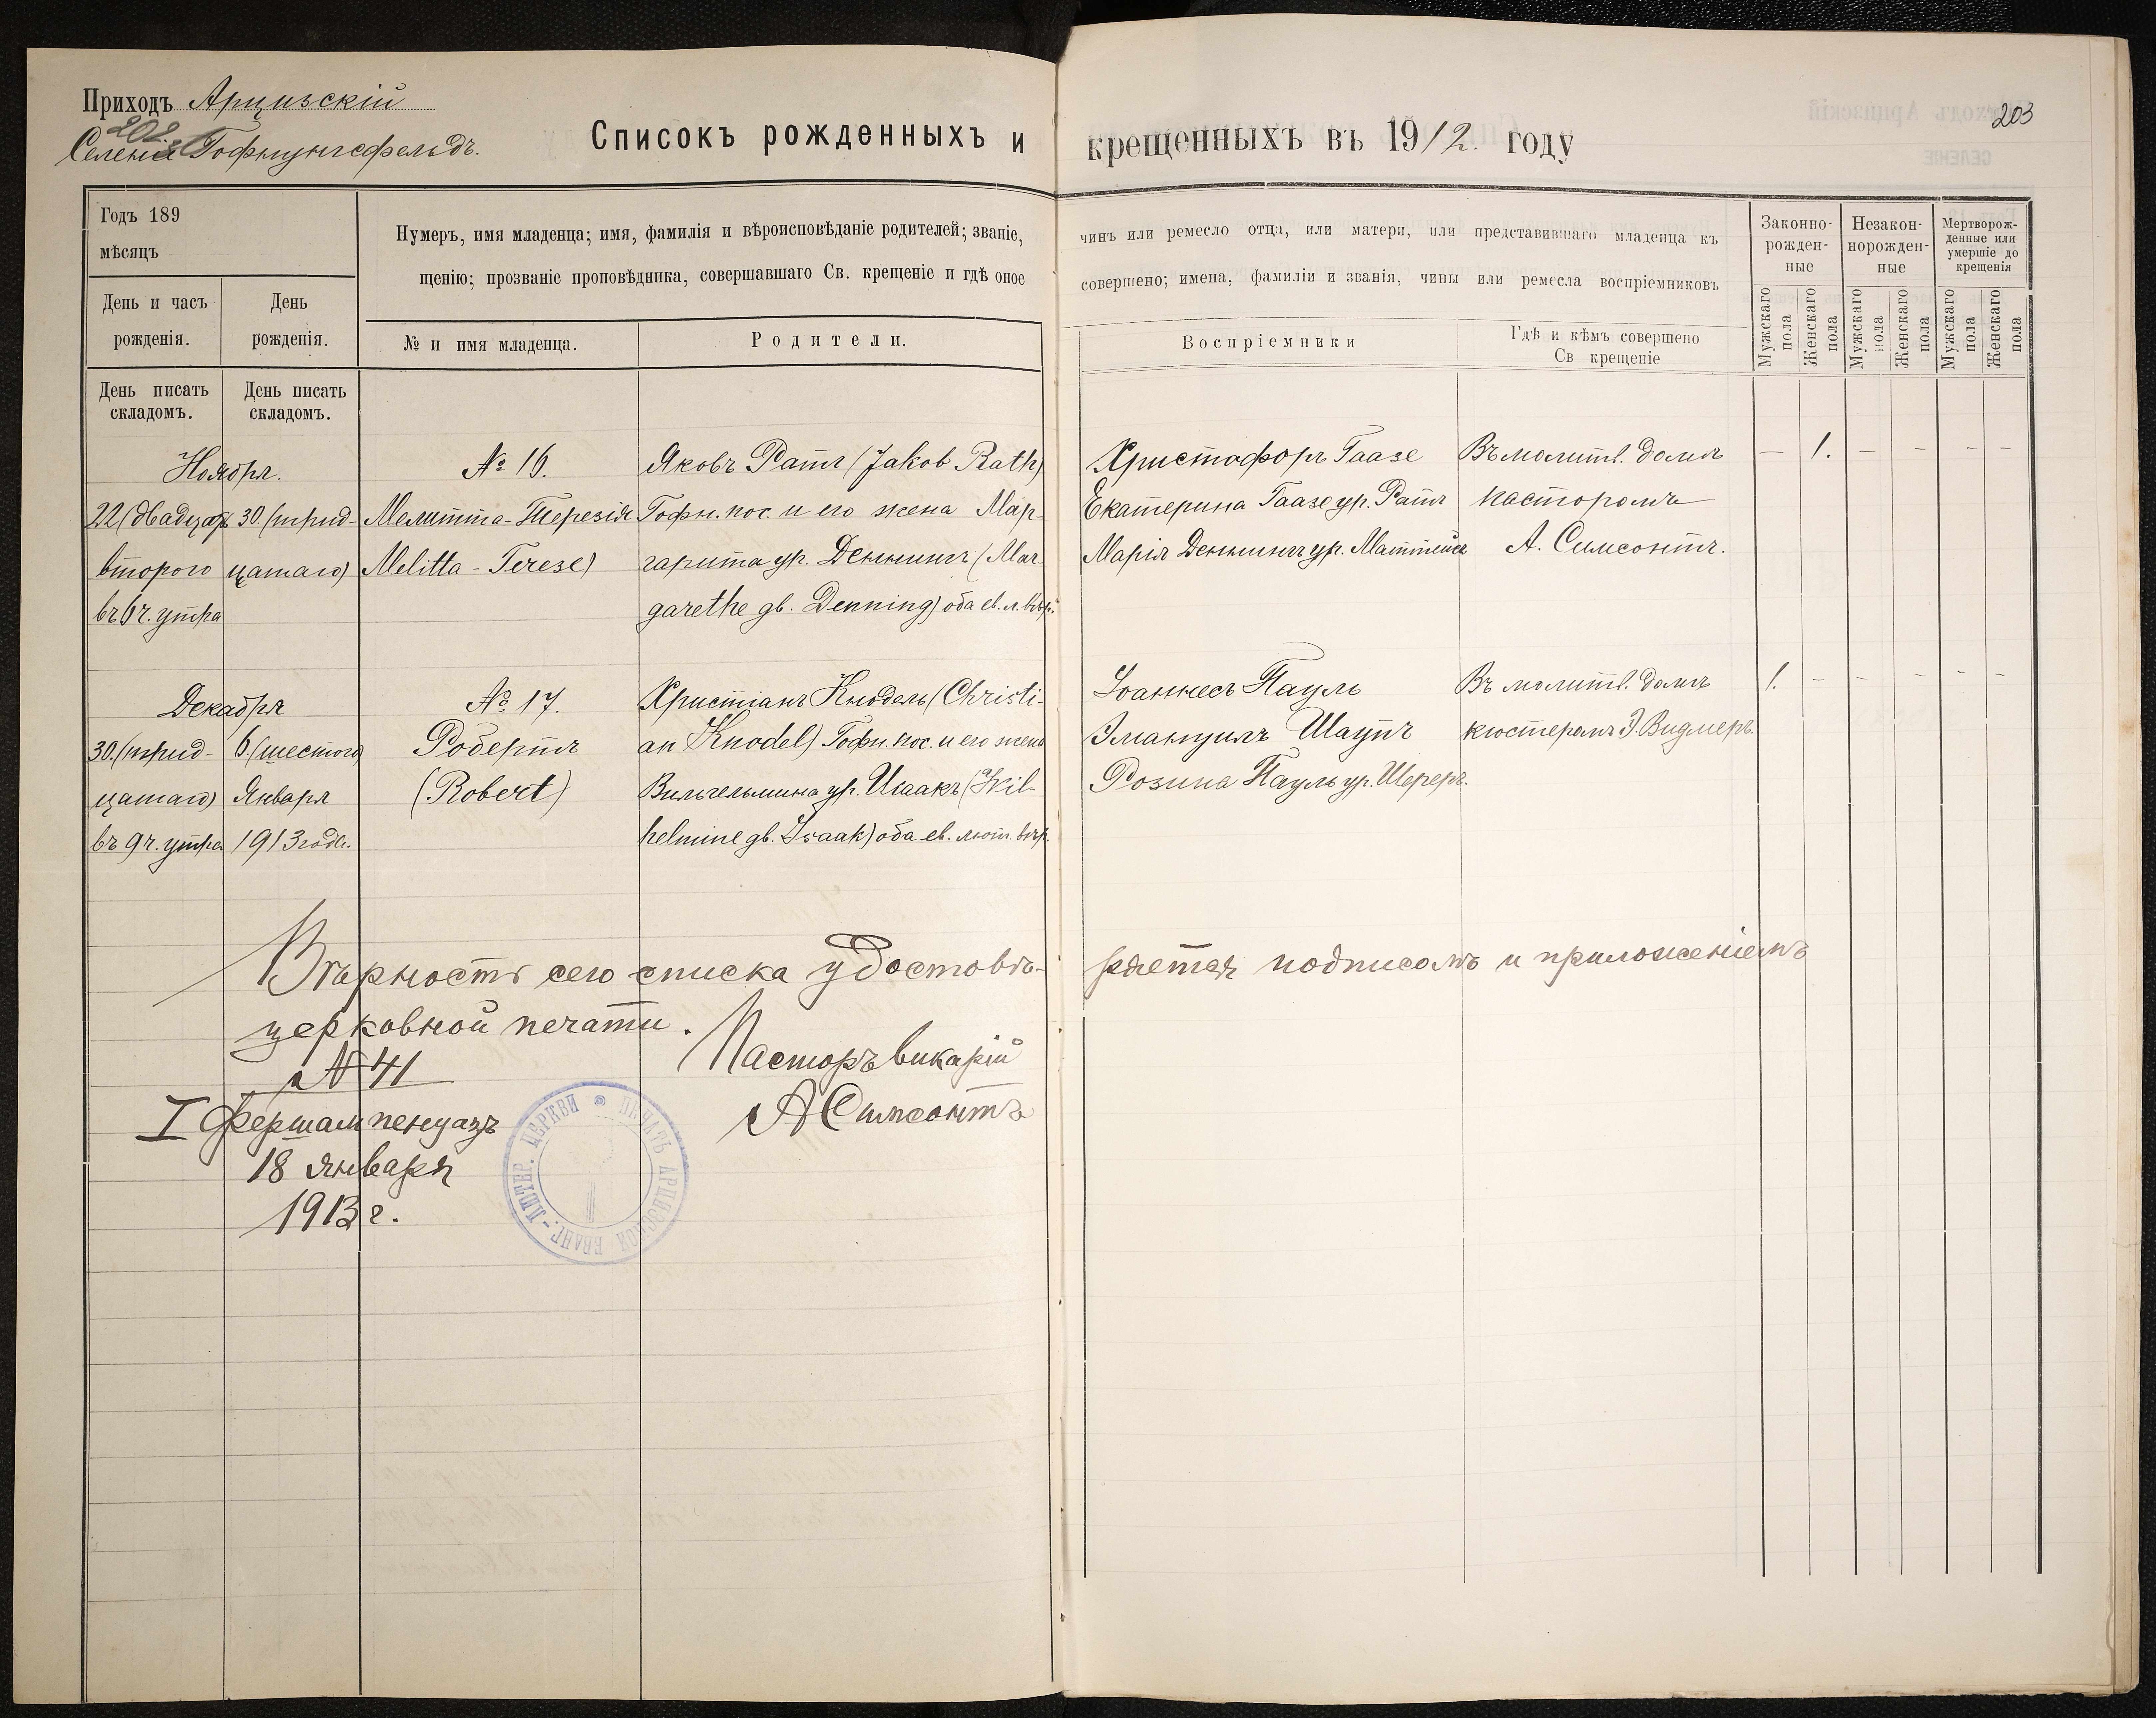 Приходъ Арцизскій
202
Селеніе Гофнунгсфельдъ.
Списокъ рожденныхъ и крещенныхъ въ 1912. году
203
Годъ 189
мѣсяцъ
День и часъ рожденія.
День рожденія.
День писать складомъ.
День писать складомъ.
Нумеръ, имя младенца; имя, фамилія и вѣроисповѣданіе родителей; званіе, чинъ или ремесло отца, или матери, или представившаго младенца къ
щенію; прозваніе проповѣдника, совершавшаго Св. крещеніе и гдѣ оное совершено; имена, фамиліи и званія, чины или ремесла воспріемниковъ
№ и имя младенца.
Родители.
Воспріемники
Гдѣ и кѣмъ совершено
Св крещеніе
Законно-
рожден-
ные
Незакон-
норожден-
ные
Мертворож-
денные или
умершіе до
крещенія
Мужскаго пола
Женскаго пола
Мужскаго пола
Женскаго пола
Мужскаго пола
Женскаго пола
Ноября.
22 (двадцать
второго
въ 6 ч. утра
30. (трид-
цатаго)
№ 16.
Мелитта-Терезія
Melitta-Terese)
Яковъ Ратъ (Jakob Rath)
Гофн. пос. и его жена Мар-
гарита ур. Деннингъ (Mar-
garethe gb. Denning) оба ев. л. вѣр.
Христофоръ Гаазе
Екатерина Гаазе ур. Ратъ
Марія Деннингъ ур. Маттейсъ
Въ молитв. домѣ
пасторомъ
А. Симсонтъ.
— 1. — — — —
Декабря
30. (трид-
цатаго)
въ 9 ч. утра
6. (шестого)
Января
1913 года.
№ 17.
Робертъ
(Robert)
Христіанъ Кнодель (Christi-
an Knodel) Гофн. пос. и его жена
Вильгельмина ур. Исаакъ (Wil-
helmine gb. Isaak) оба ев. лют. вѣр.
Іоаннесъ Пауль
Эмануилъ Шаупъ
Розина Пауль ур. Шереръ.
Въ молитв. домѣ
кюстеромъ Э. Видмеръ.
1. — — — — —
Вѣрность сего списка удостовѣ-
ряется подписомъ и приложеніемъ
церковной печати.
№ 41
I Фершампенуазъ
18 января
1913 г.
Пасторъ викарій
А Симсонтъ
ПЕЧАТЬ АРЦИЗСКОЙ ЕВАНГ.-ЛЮТЕР. ЦЕРКВИ